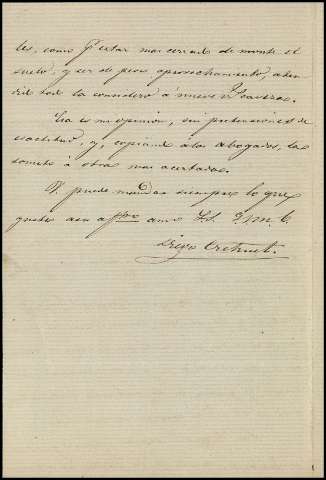 les, como p.r estar mas cerrado de monte el
suelo, y ser de peor aprovechamiento, aten
dido todo la considero á nueve
Esa es mi opinion, sin pretensiones de
exactitud, y, copiando a los abogados, las
someto á otras mas acertadas.
V. puede mandar siempre lo que
guste a su affmo amo S.S. Q.S.M.B.
Diego